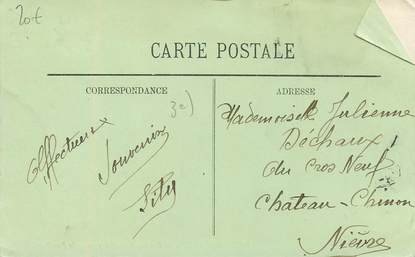 20€
CARTE POSTALE
CORRESPONDANCE
3e)
Affectueux
Souvenir
ADRESSE
Mademoiselle Julienne
Déchaux
du Cros Neuf
Chateau-Chinon
Nièvre